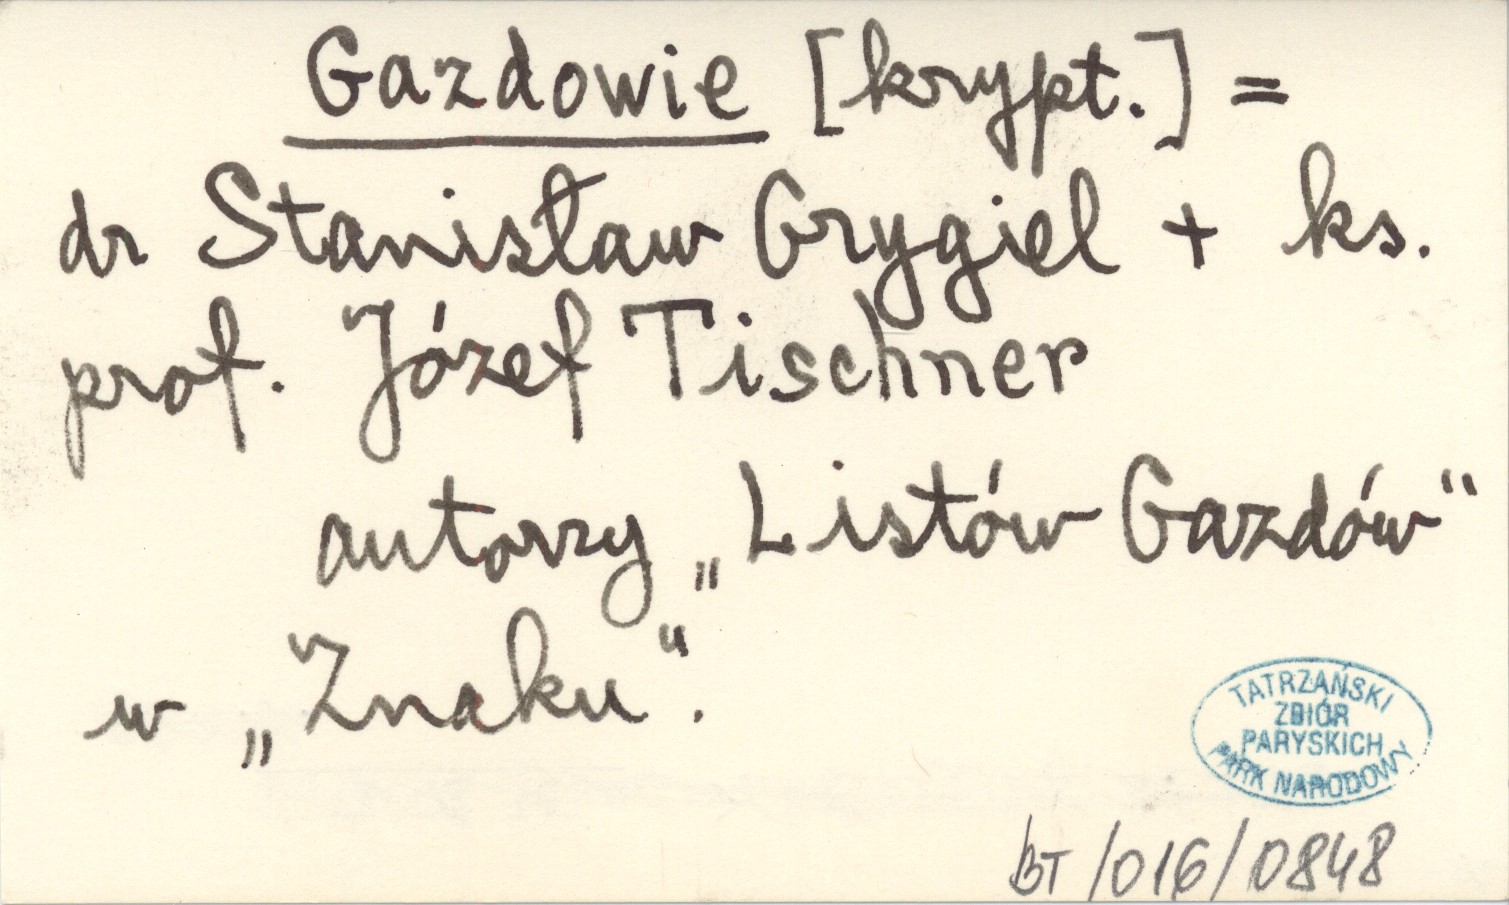 Gazdowie [krypt.] =
dr Stanisław Grygiel + ks.
prof. Józef Tischner
autorzy „Listów Gazdów"
w „Znaku".
TATRZAŃSKI
ZBIÓR
PARYSKICH
PARK NARODOWY
BT/016/0848